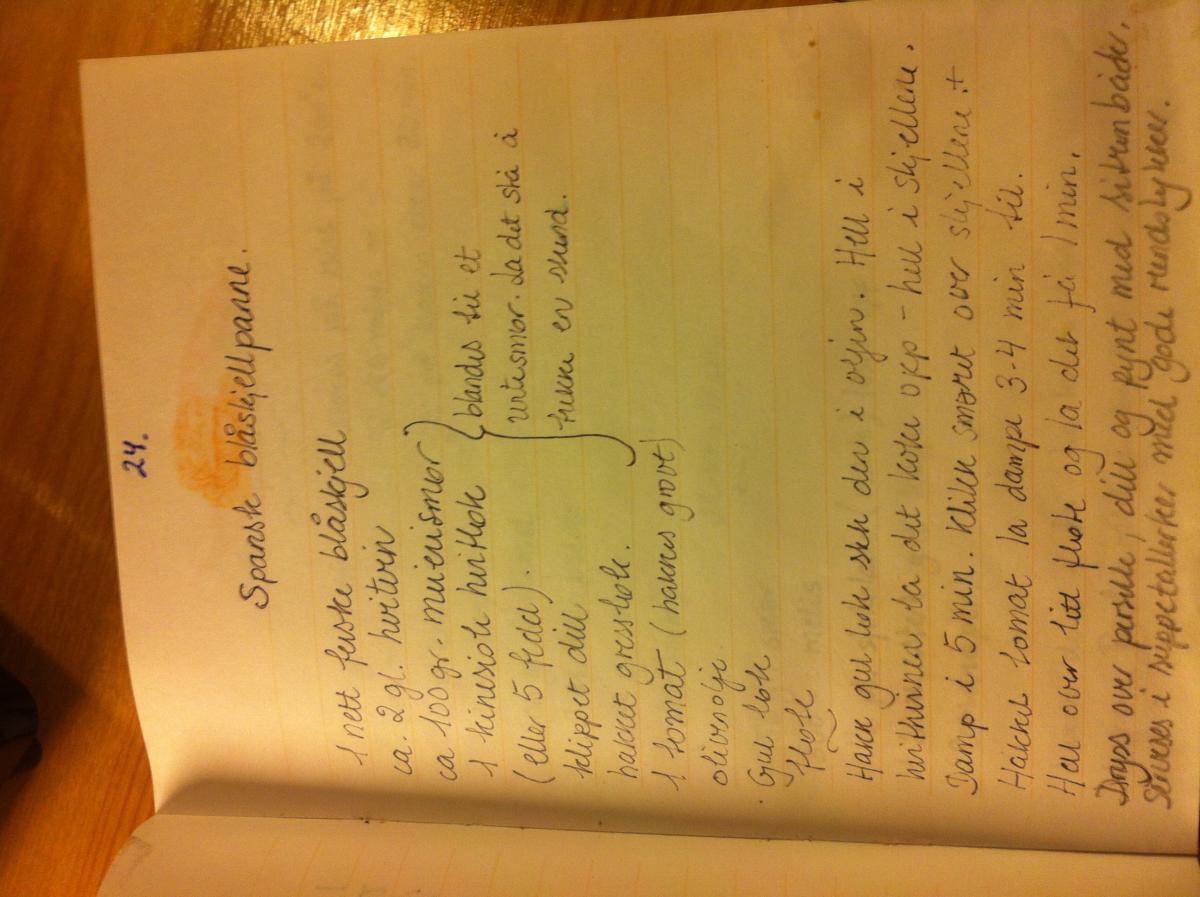 24.
Spansk blåskjellpanne.
1 nett ferske blåskjell
ca. 2 gl. hvitvin
ca 100 gr. meierismør
1 kinesisk hvitløk
(eller 5 fedd).
klippet dill
hakket gressløk.
blandes til et
urtesmør. La det stå å
trekke en stund.
1 tomat (hakkes grovt)
olivenolje
Gul løk
fløte
Hakk gul løk stek den i oljen. Hell i
hvitvinen la det koke opp - hell i skjellene.
Damp i 5 min. Klikk smøret over skjellene +
Hakket tomat la dampe 3-4 min til.
Hell over litt fløte og la det få 1 min.
Dryss over persille, dill og pynt med sitronbåder.
Serveres i suppetallerker med gode rundstykker.